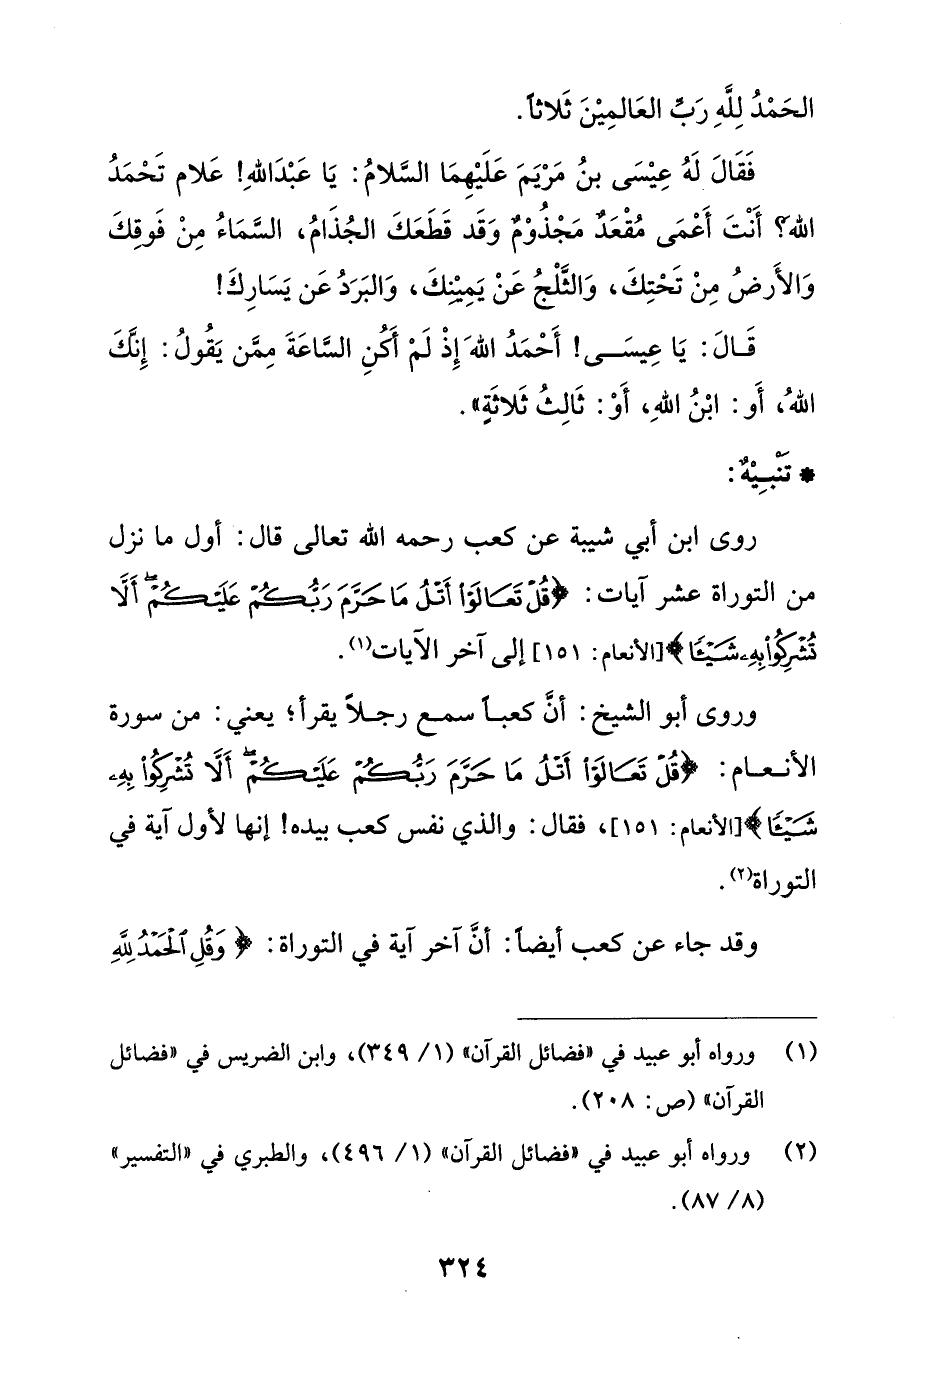 الحَمْدُ لِلَّهِ رَبِّ العَالمِيْنَ ثَلاثاً.
فَقَالَ لَهُ عِيْسَى بنُ مَرْيَمَ عَلَيْهِمَا السَّلامُ: يَا عَبْدَاللهِ! عَلام تَحْمَدُ
اللهَ؟ أَنْتَ أَعْمَى مُقْعَدٌ مَجْذُوْمٌ وَقَد قَطَعَكَ الجُذَامُ، السَّمَاءُ مِنْ فَوقِكَ
وَالأَرضُ مِنْ تَحْتِكَ، وَالثَّلْجُ عَنْ يَمِيْنِكَ، وَالبَرَدُ عَن يَسَارِكَ!
قَالَ: يَا عِيسَى! أَحْمَدُ اللهَ إِذْ لَمْ أَكُنِ السَّاعَةَ مِمَّن يَقُولُ: إِنَّكَ
اللهُ، أَو: ابْنُ اللهِ، أَوْ: ثَالِثُ ثَلاثَةٍ».
* تَنْبِيْهٌ:
روى ابن أبي شيبة عن كعب رحمه الله تعالى قال: أول ما نزل
من التوراة عشر آيات: ﴿قُلْ تَعَالَوْا أَتْلُ مَا حَرَّمَ رَبُّكُمْ عَلَيْكُمْ ۖ أَلَّا
تُشْرِكُوا بِهِۦ شَيْئًا﴾[الأنعام: ١٥١] إلى آخر الآيات(١).
وروى أبو الشيخ: أنَّ كعباً سمع رجلاً يقرأ؛ يعني: من سورة
الأنعام: ﴿قُلْ تَعَالَوْا أَتْلُ مَا حَرَّمَ رَبُّكُمْ عَلَيْكُمْ ۖ أَلَّا تُشْرِكُوا بِهِۦ
شَيْئًا﴾[الأنعام: ١٥١]، فقال: والذي نفس كعب بيده! إنها لأول آية في
التوراة(٢).
وقد جاء عن كعب أيضاً: أنَّ آخر آية في التوراة: ﴿وَقُلِ ٱلْحَمْدُ لِلَّهِ
(١) ورواه أبو عبيد في «فضائل القرآن» (١/ ٣٤٩)، وابن الضريس في «فضائل
القرآن» (ص: ٢٠٨).
(٢) ورواه أبو عبيد في «فضائل القرآن» (١/ ٤٩٦)، والطبري في «التفسير»
(٨/ ٨٧).
٣٢٤